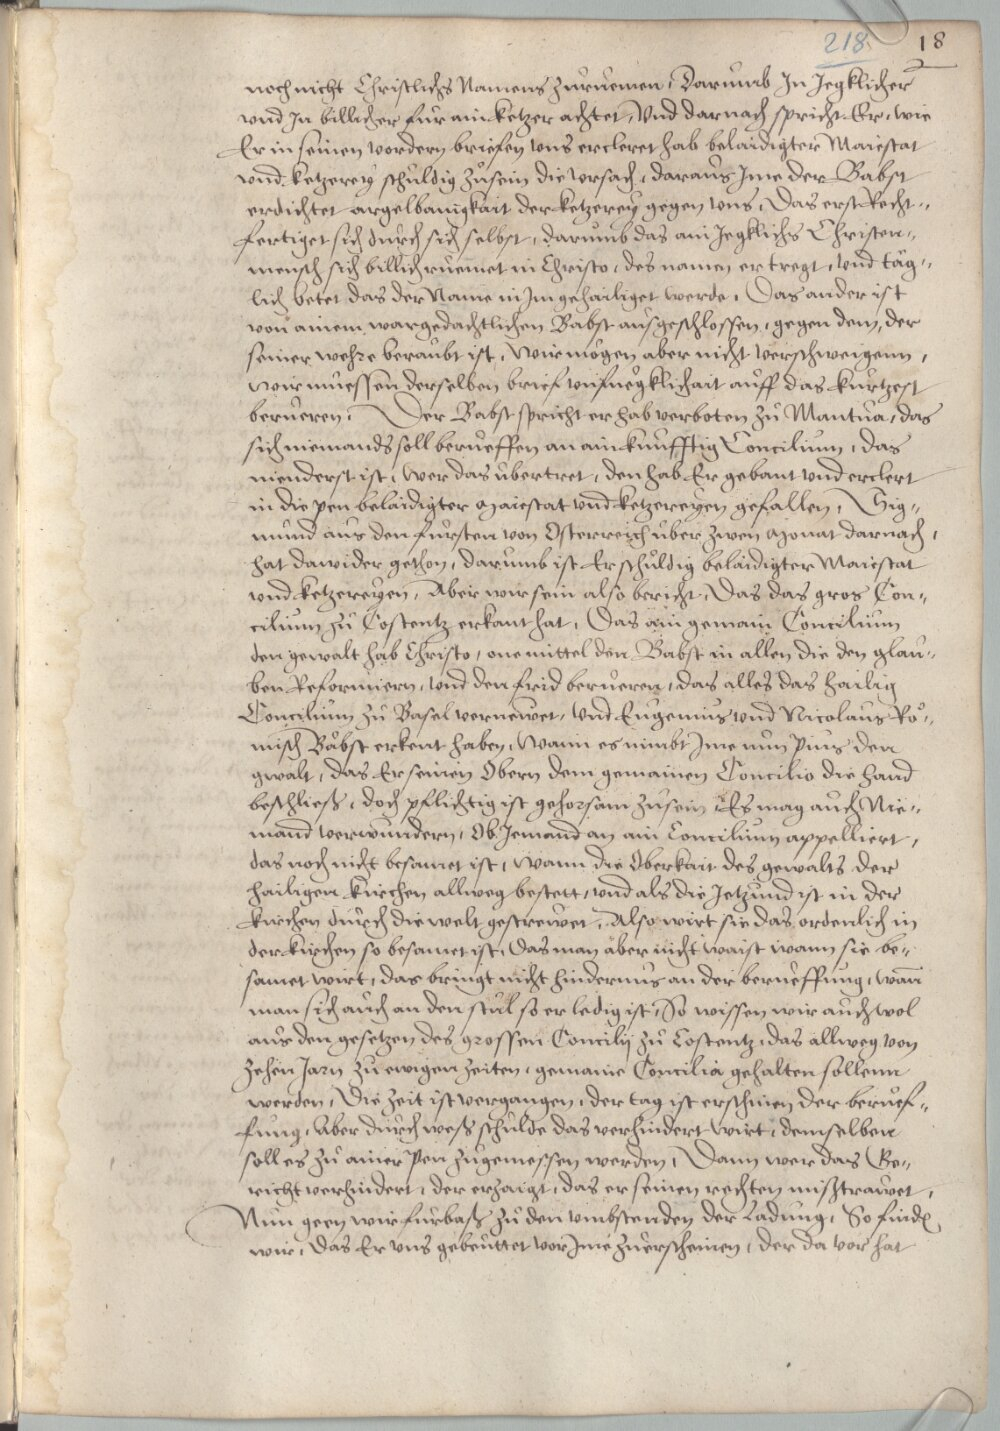 218 18
noch nicht Christlichs Namens zuruemen, Darumb In Jegklicher
vnd In billicher fur ain ketzer achtet, Vnd darnach spricht Er, wie
Er in seinen vordern briefen vns ercleret hab belaidigter Maiestat
vnd ketzereÿ schuldig zusein die vrsach, daraus Ime der Babst
erdichtet argelbanigkait der ketzereÿ gegen vns, Das erst Recht-
fertiget sich durch sich selbst, darumb das ain Jegklichs Christen-
mensch sich billich ruemet in Christo, des namen er tregt, vnd täg-
lich betet das der Name in Im gehailiget werde, Das ander ist
von ainem wargedachtlichen Babst ausgeschlossen, gegen dem, der
seiner wehre beraubt ist, Wir mögen aber nicht verschweigenn,
Wir muessen derselben brief vnfuegklichait auff das kurtzest
berüeren, Der Babst spricht er hab verboten zu Mantua, das
sich niemands soll berueffen an ain kunfftig Concilium, das
nienderst ist, Wer das vbertret, den hab Er gebant vnd erclert
in die pen belaidigter Maiestat vnd ketzereÿen gefallen, Sig-
mund aus den fursten von Osterreich über zwen Monat darnach,
hat dawider gethon, darumb ist Er schuldig belaidigter Maiestat
vnd ketzereÿen, Aber wir sein also bericht, Das das gros Con-
cilium zu Costentz erkant hat, Das ain gemain Concilium
den gewalt hab Christo, one mittel den Babst in allen die den glau-
ben Reformiern, vnd den frid berueren, das alles das hailig
Concilium zu Basel vernewet, vnd Eugenius vnd Nicolaus Rö-
misch Bäbst erkent haben, Wann es nimbt Ime nun Pius den
gwalt, das Er seinen Obern dem gemainen Concilio die hand
beschließ, doch pflichtig ist gehorsam zusein, Es mag auch Nie-
mand verwundern, Ob Jemand an ain Concilium appelliert,
das noch nicht besamet ist, Wann die Oberkait des gewalts der
hailigen kirchen allweg bestett, vnd als die Jetzund ist in der
kirchen durch die welt gestrewet, Also wirt sie das ordenlich in
der kirchen so besamet ist, Das man aber nicht waist wann sie be-
samet wirt, das bringt nicht hindernus an der berueffung, wan
man sich auch an den stul so er ledig ist, So wissen wir auch wol
aus den gesetzen des grossen Concilij zu Costentz, das allweg von
zehen Jarn zu ewigen zeiten, gemaine Concilia gehalten sollenn
werden, Die zeit ist vergangen, der tag ist erschinen der beruef-
fung, Aber durch weß schulde das verhindert wirt, demselben
soll es zu ainer Pen zugemessen werden, Dann wer das Ge-
richt verhindert, der erzaigt, das er seinen rechten mißtrawet,
Nun geen wir furbaß zu den vmbstenden der Ladung, So finden
wir, Das Er vns gebeuttet vor Ime zuerscheinen, der da vor hat